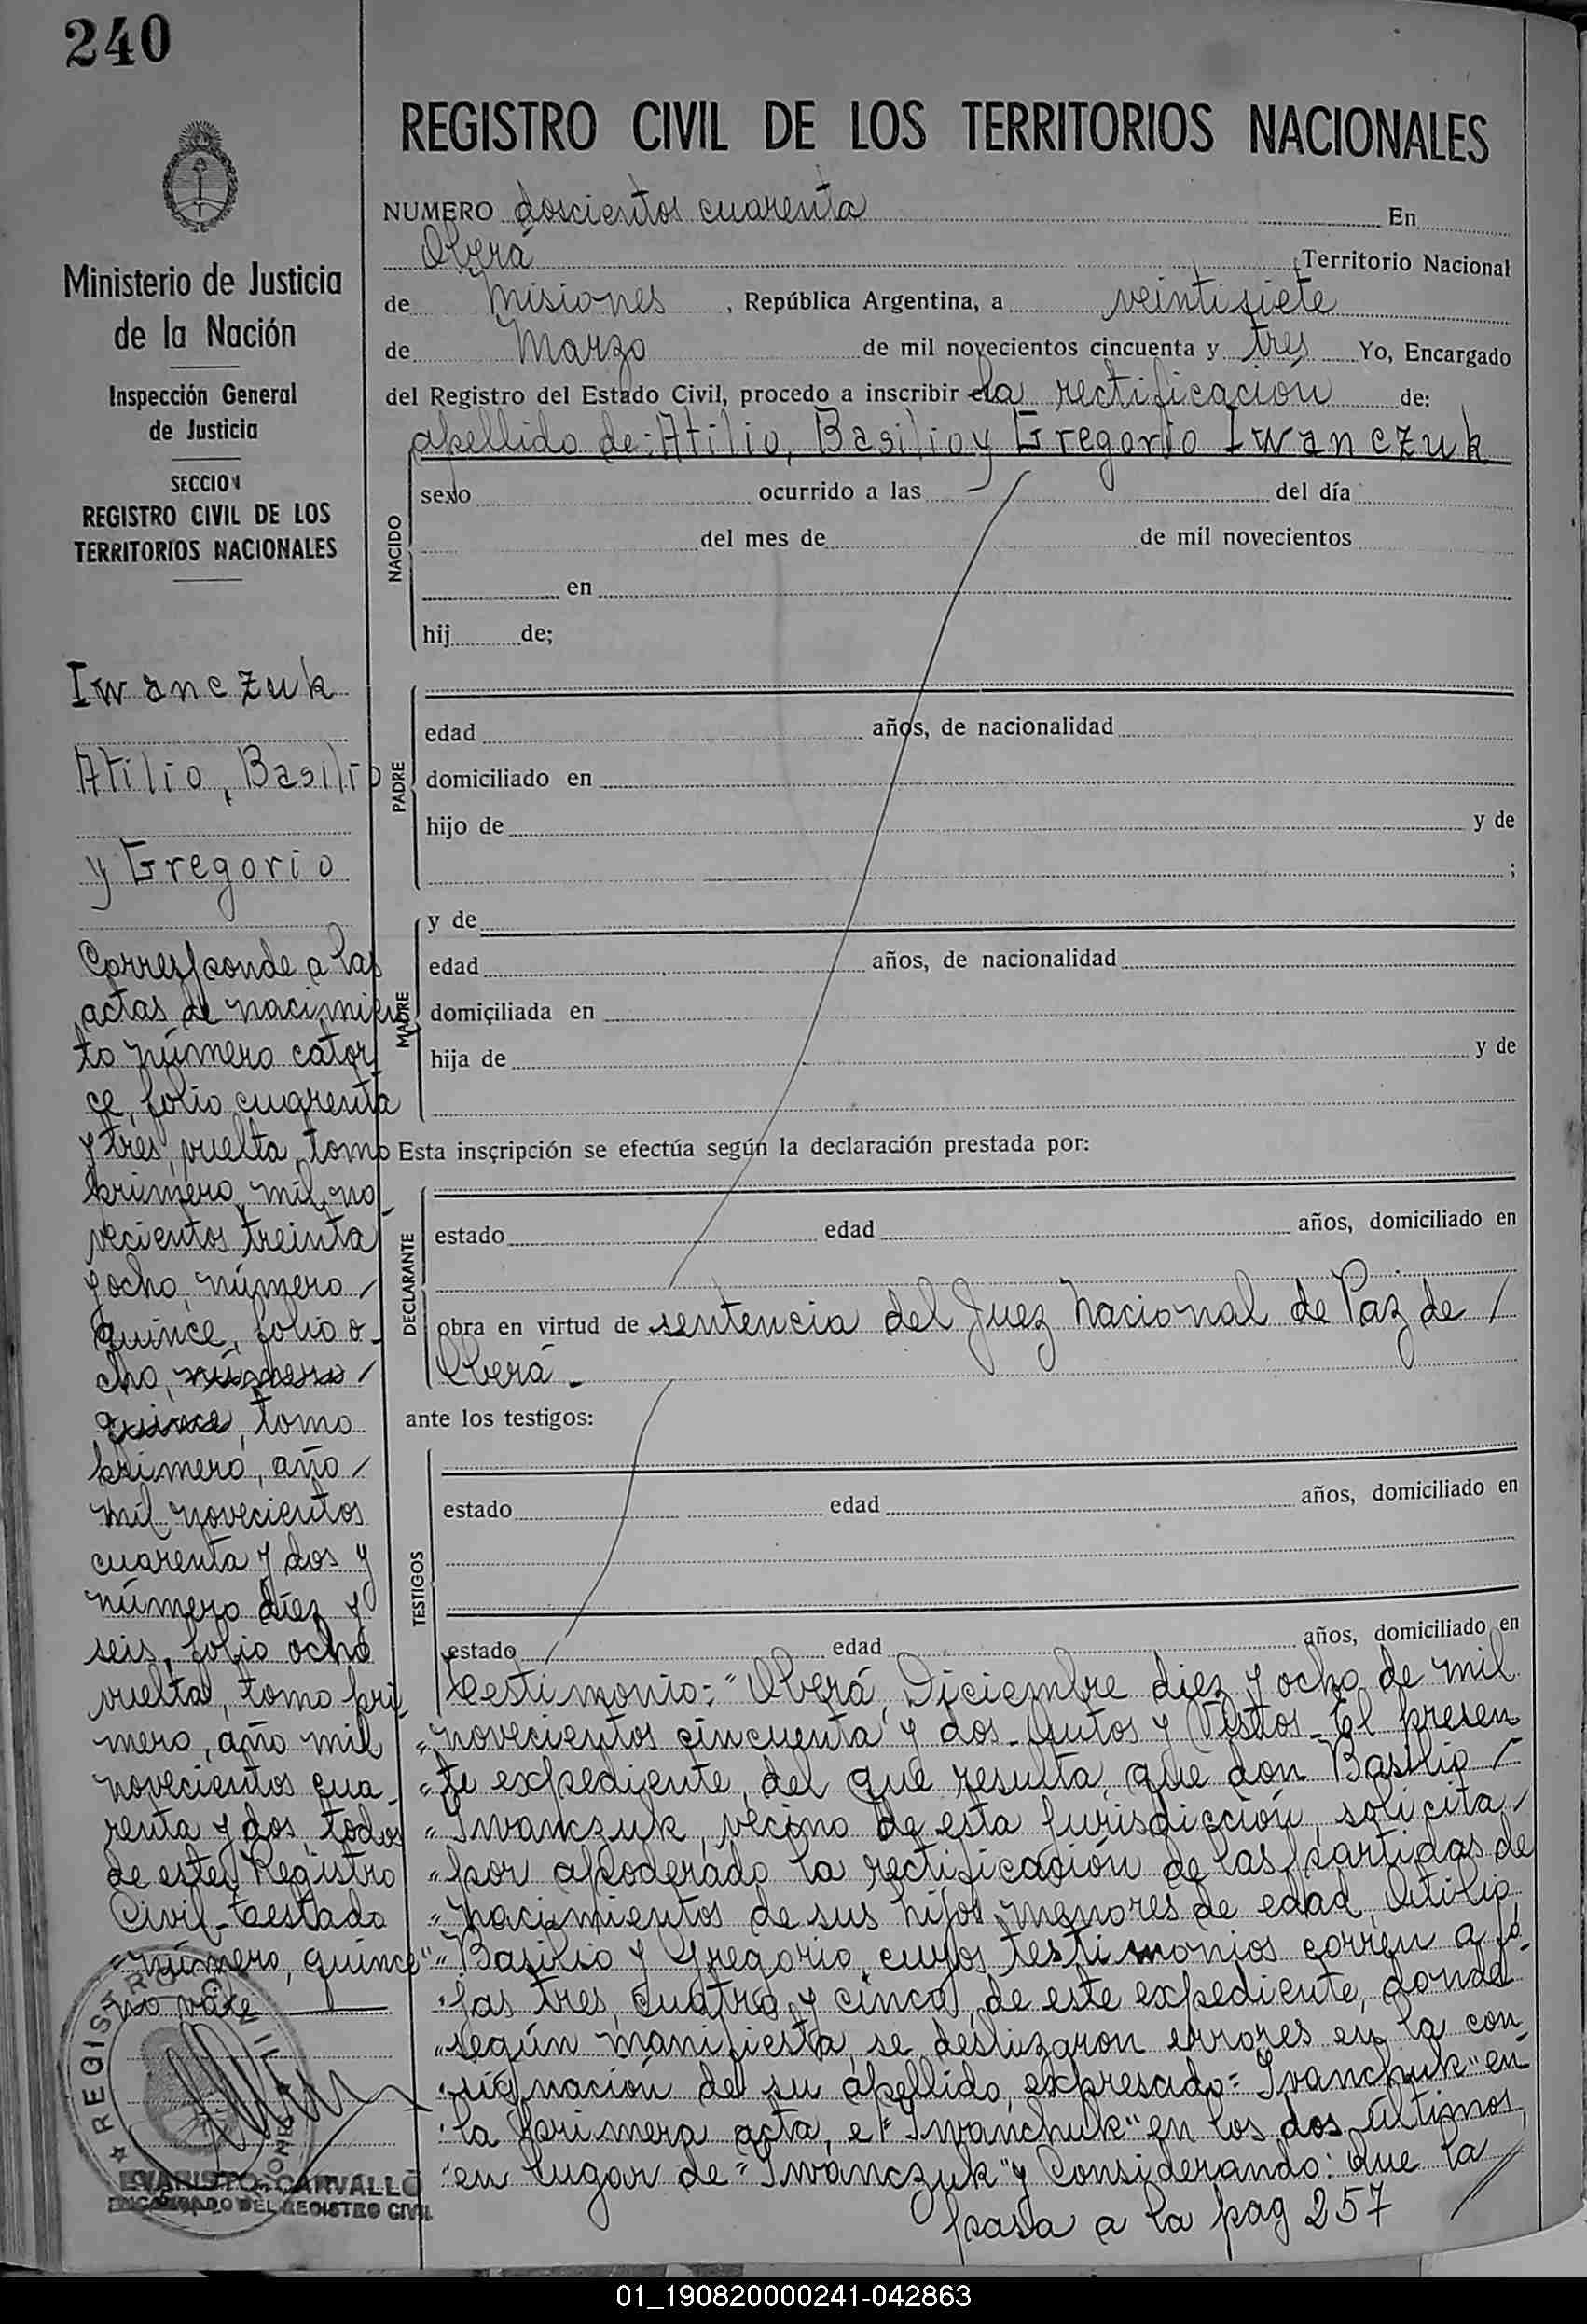 240
Ministerio de Justicia
de la Nación
Inspección General
de Justicia
SECCION
REGISTRO CIVIL DE LOS
TERRITORIOS NACIONALES
Iwanczuk
Atilio, Basilio
y Gregorio
Corresponde a las
actas de nacimien
to número cator
ce, folio cuarenta
y tres vuelta, tomo
primero, mil no_
vecientos treinta
y ocho, número /
quince, folio o_
cho, número /
quince, tomo
primero, año /
mil novecientos
cuarenta y dos y
número diez y
seis, folio ocho
vuelta, tomo pri
mero, año mil
novecientos cua_
renta y dos, todos
de este Registro
Civil_Testado
"número, quince"
no vale
REGISTRO CIVIL
EVARISTO CARVALLO
ENCARGADO DEL REGISTRO CIVIL
REGISTRO CIVIL DE LOS TERRITORIOS NACIONALES
NUMERO doscientos cuarenta En
Oberá Territorio Nacional
de Misiones, República Argentina, a veintisiete
de Marzo de mil novecientos cincuenta y tres Yo, Encargado
del Registro del Estado Civil, procedo a inscribir la rectificación de:
apellido de: Atilio, Basilio y Gregorio Iwanczuk
NACIDO
sexo ocurrido a las del día
del mes de de mil novecientos
en
hij de;
PADRE
edad años, de nacionalidad
domiciliado en
hijo de y de
;
MADRE
y de
edad años, de nacionalidad
domiciliada en
hija de y de
Esta inscripción se efectúa según la declaración prestada por:
DECLARANTE
estado edad años, domiciliado en
obra en virtud de sentencia del Juez Nacional de Paz de /
Oberá_
ante los testigos:
TESTIGOS
estado edad años, domiciliado en
estado edad años, domiciliado en
Testimonio: "Oberá, Diciembre diez y ocho de mil
"novecientos cincuenta y dos_Autos y Vistos_El presen
"te expediente, del que resulta, que don Basilio /
"Iwanczuk, vecino de esta Jurisdicción, solicita /
"por apoderado la rectificación de las partidas de
"nacimientos de sus hijos menores de edad, Atilio,
"Basilio y Gregorio, cuyos testimonios corren a fo_
"jas tres, cuatro y cinco, de este expediente, donde
"según manifiesta, se deslizaron errores en la con_
"signación de su apellido, expresado="Ivanchuk" en
"la primera acta, e "Iwanchuk" en los dos últimos,
"en lugar de="Iwanczuk" y Considerando: Que la
pasa a la pag 257
01_190820000241-042863